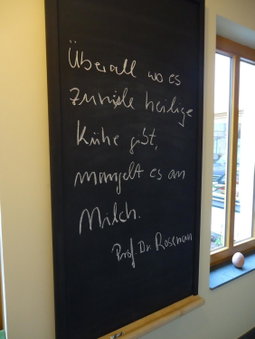 Überall wo es
zuviele heilige
Kühe gibt,
mangelt es an
Milch.
Prof. Dr. Rosemann